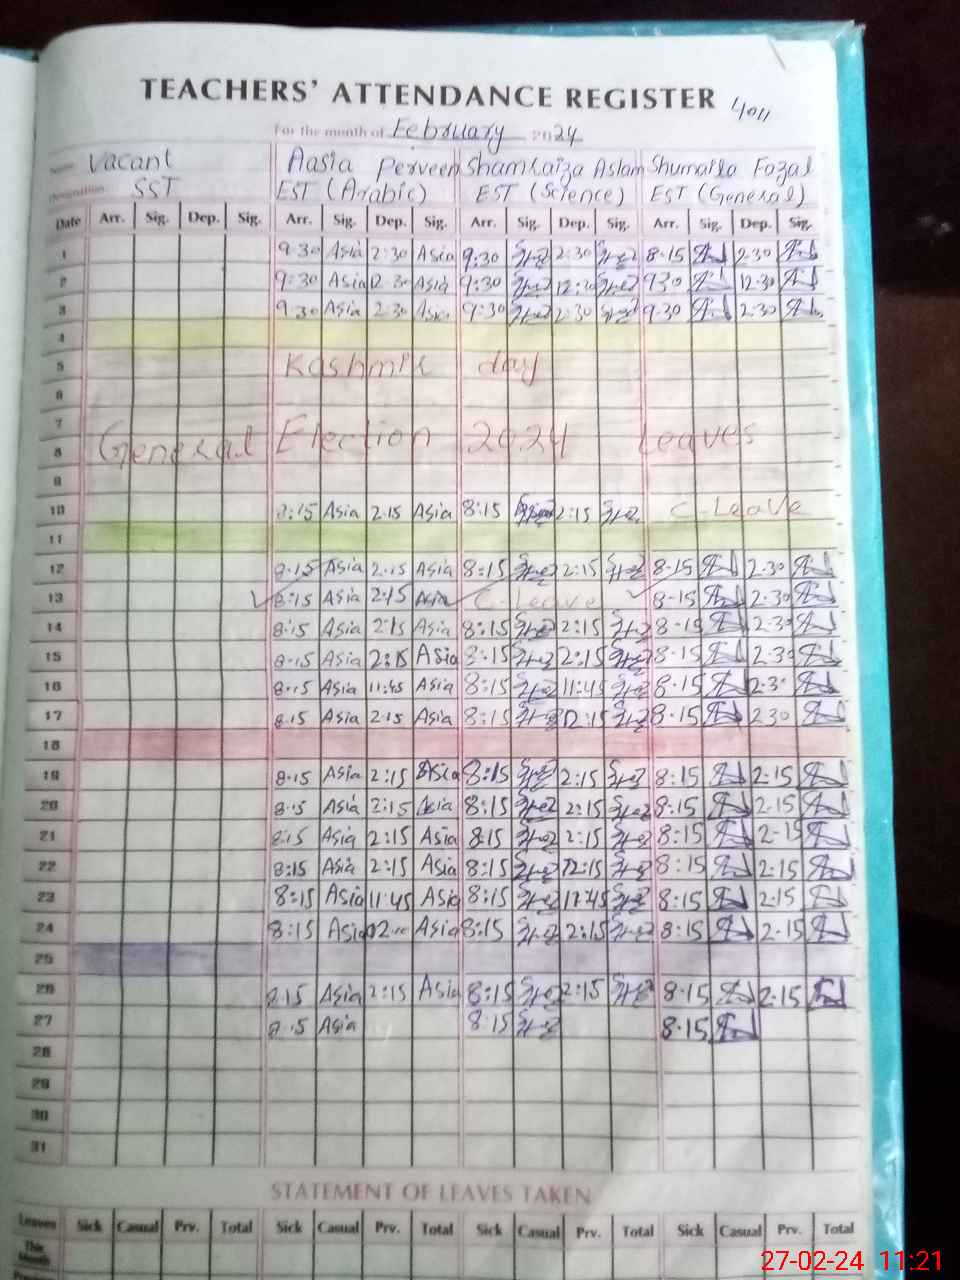 TEACHERS' ATTENDANCE REGISTER
For the month of February 2024
Vacant Aasia Perveen Shamraiza Aslam Shumaila Fazal
Designation SST EST (Arabic) EST (Science) EST (General)
Date Arr. Sig. Dep. Sig. Arr. Sig. Dep. Sig. Arr. Sig. Dep. Sig. Arr. Sig. Dep. Sig.
1 9:30 Asia 2:30 Asia 9:30 2:30 8-15 2-30
2 9:30 Asia 12:30 Asia 9:30 930 12-30
3 9.30 Asia 2-30 Asia 9:30 2:30 9.30 2-30
4
5 Kashmir day
6
7
8 General Election 2024 Leaves
9
10 8:15 Asia 2.15 Asia 8:15 2:15 C-Leave
11
12 8-15 Asia 2.15 Asia 8:15 2:15 8-15 2-30
13 8:15 Asia 2:15 Asia C-Leave 8-15 2-30
14 8:15 Asia 2:15 Asia 8:15 2:15 8-15 2-30
15 8-15 Asia 2:15 Asia 8:15 2:15 8-15 2-30
16 8-15 Asia 11:45 Asia 8:15 11:45 8-15
17 8.15 Asia 2.15 Asia 8:15 8-15 2.30
18
19 8-15 Asia 2:15 Asia 8:15 2:15 8:15 2-15
20 8-15 Asia 2:15 Asia 8:15 2:15 8:15 2-15
21 8:15 Asia 2:15 Asia 8:15 2:15 8:15 2-15
22 8:15 Asia 2:15 Asia 8:15 8:15 2:15
23 8:15 Asia 11:45 Asia 8:15 8:15 2-15
24 8:15 Asia Asia 8:15 2:15 8:15 2-15
25
26 8.15 Asia 2:15 Asia 8:15 2:15 8-15 2-15
27 8.15 Asia 8:15 8-15
28
29
30
31
STATEMENT OF LEAVES TAKEN
Leaves Sick Casual Prv. Total Sick Casual Prv. Total Sick Casual Prv. Total Sick Casual Prv. Total
This
Month
27-02-24 11:21